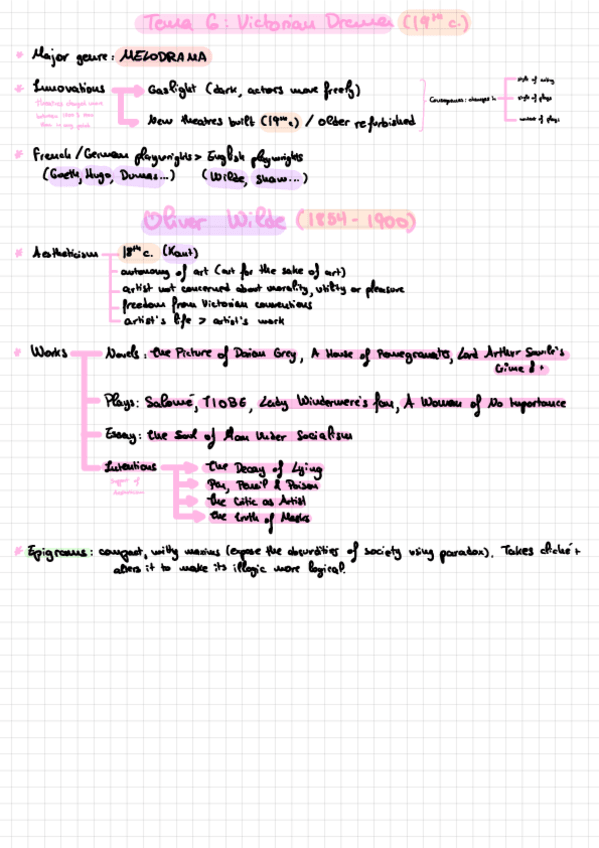 Tema 6: Victorian Drama (19th c.)
* Major genre: MELODRAMA
* Innovations
Gaslight (dark, actors move freely)
New theatres built (19th c) / older refurbished
Consequences: changes in
style of acting
style of plays
content of plays
* French/German playwrights > English playwrights
(Goeth, Hugo, Dumas...) (Wilde, Shaw...)
Oliver Wilde (1854-1900)
* Aestheticism
18th c. (Kant)
autonomy of art (art for the sake of art)
artist not concerned about morality, utility or pleasure
freedom from Victorian conventions
artist's life > artist's work
* Works
Novels: the Picture of Dorian Grey, A House of Pomegranates, Lord Arthur Savile's
Crime &
Plays: Salomé, TIOBE, Lady Windermere's fan, A Woman of No Importance
Essay: the Soul of Man Under Socialism
Intentions
support of
Aestheticism
the Decay of Lying
Pen, Pencil & Poison
the Critic as Artist
the truth of Masks
* Epigrams: compact, witty maxims (expose the absurdities of society using paradox). Takes cliché +
alters it to make its illogic more logical.